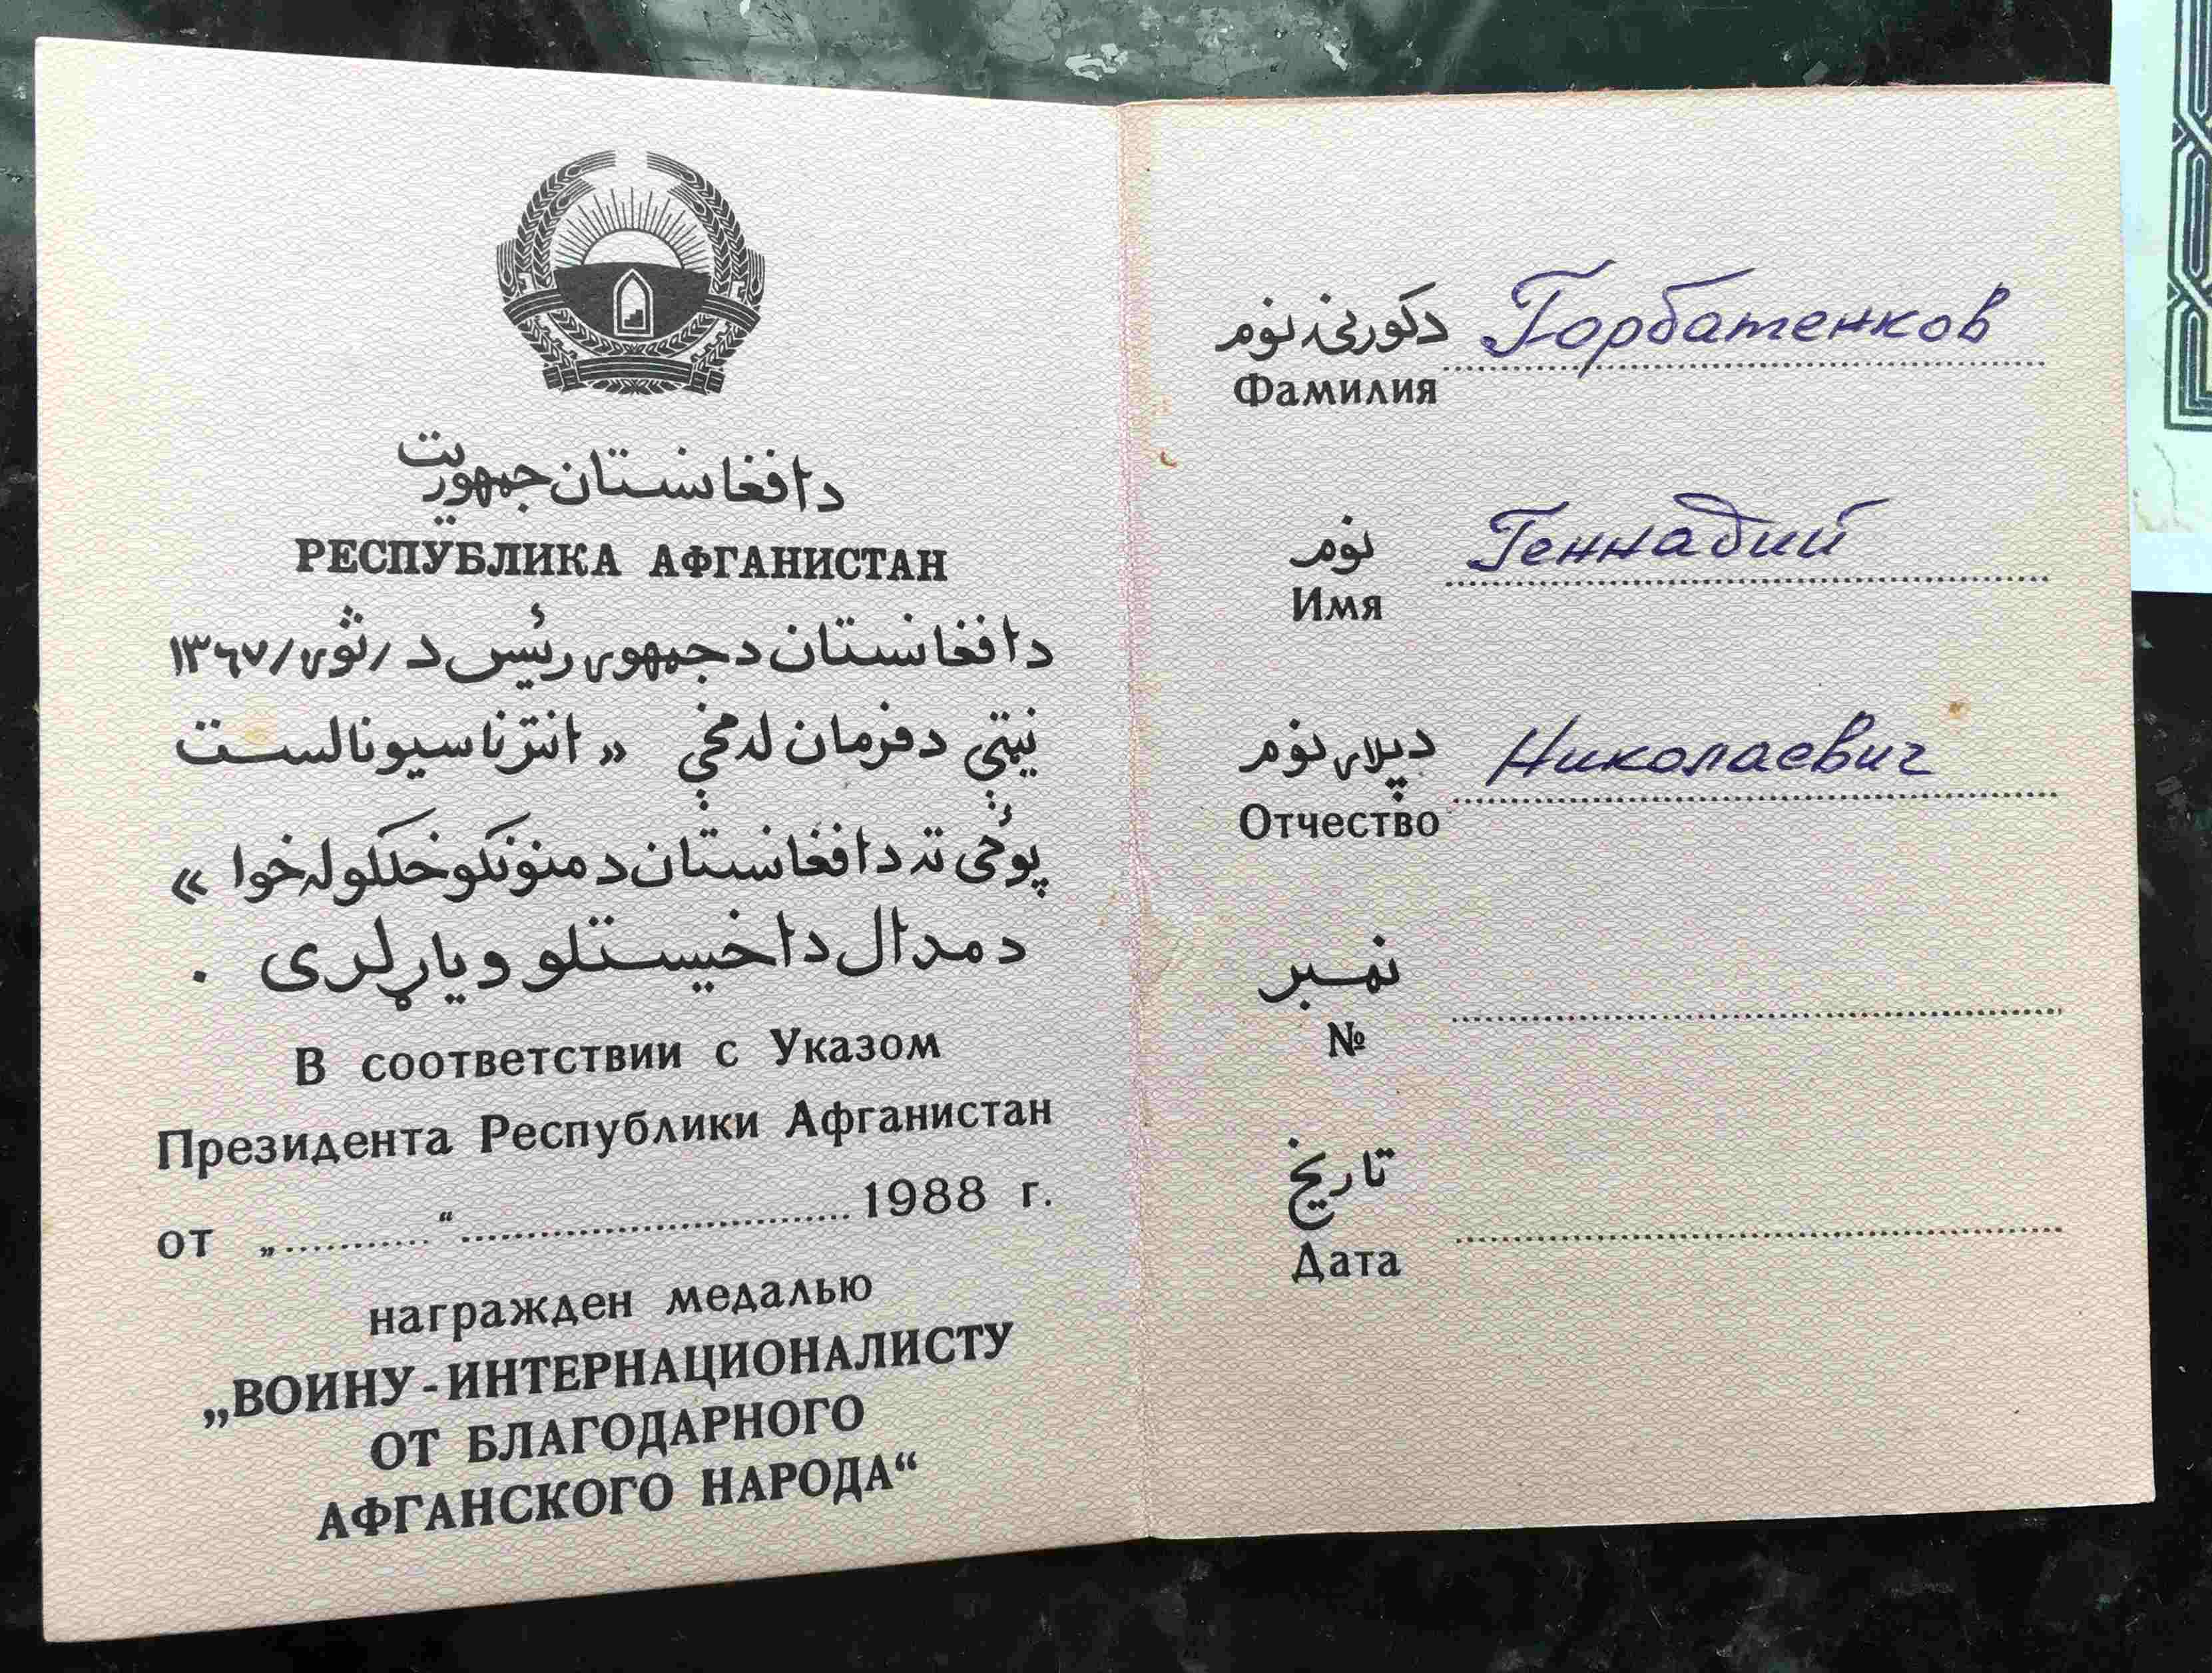 د افغانستان جمهوريت
РЕСПУБЛИКА АФГАНИСТАН
د افغانستان د جمهوری رئيس د / ثوری / ١٣٦٧
نېټې د فرمان له مخې « انترناسيونالست
پوځی ته د افغانستان د منونکو خلکو له خوا »
د مډال د اخيستلو وياړ لری .
В соответствии с Указом
Президента Республики Афганистан
от „............“............................1988 г.
награжден медалью
„ВОИНУ-ИНТЕРНАЦИОНАЛИСТУ
ОТ БЛАГОДАРНОГО
АФГАНСКОГО НАРОДА“
د کورنۍ نوم Горбатенков
Фамилия
نوم Геннадий
Имя
د پلار نوم Николаевич
Отчество
نمبر
№
تاريخ
Дата